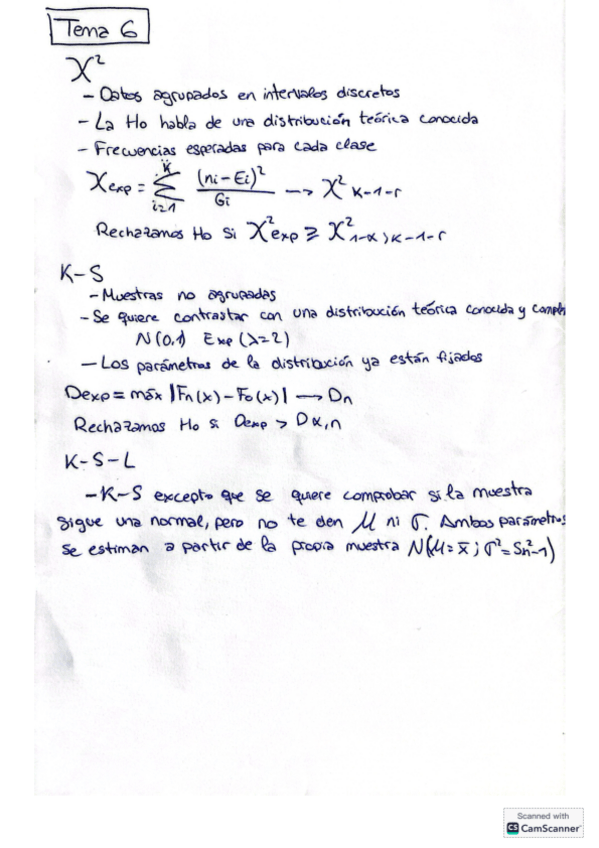 Tema 6
X²
- Datos agrupados en intervalos discretos
- La Ho habla de una distribución teórica conocida
- Frecuencias esperadas para cada clase
Xexp = Σ(i=1, K) (ni-Ei)² / Gi → X² K-1-r
Rechazamos Ho si X²exp ≥ X²1-α; K-1-r
K-S
- Muestras no agrupadas
- Se quiere contrastar con una distribución teórica conocida y compl
N(0,1) Exp(λ=2)
- Los parámetros de la distribución ya están fijados
Dexp = máx |Fn(x) - Fo(x)| → Dn
Rechazamos Ho si Dexp > Dα,n
K-S-L
- K-S excepto que se quiere comprobar si la muestra
sigue una normal, pero no te den μ ni σ. Ambos parámetros
se estiman a partir de la propia muestra N(μ=x̄; σ²=Sn²-1)
Scanned with
CS CamScanner